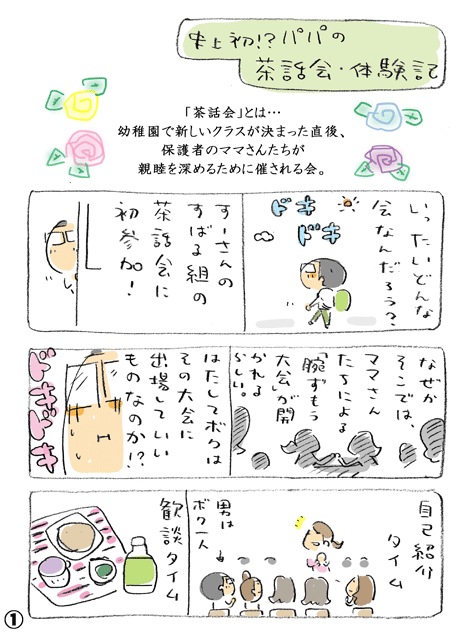 史上初!?パパの
茶話会・体験記
「茶話会」とは…
幼稚園で新しいクラスが決まった直後、
保護者のママさんたちが
親睦を深めるために催される会。
いったいどんな
会なんだろう?
ドキ
ドキ
すーさんの
すばる組の
茶話会に
初参加!
なぜか
そこでは、
ママさん
たちによる
「腕ずもう
大会」が開
かれる
らしい。
はたしてボクは
その大会に
出場していい
ものなのか!?
ドギマギ
自己紹介
タイム
男は
ボク一人
歓談タイム
①